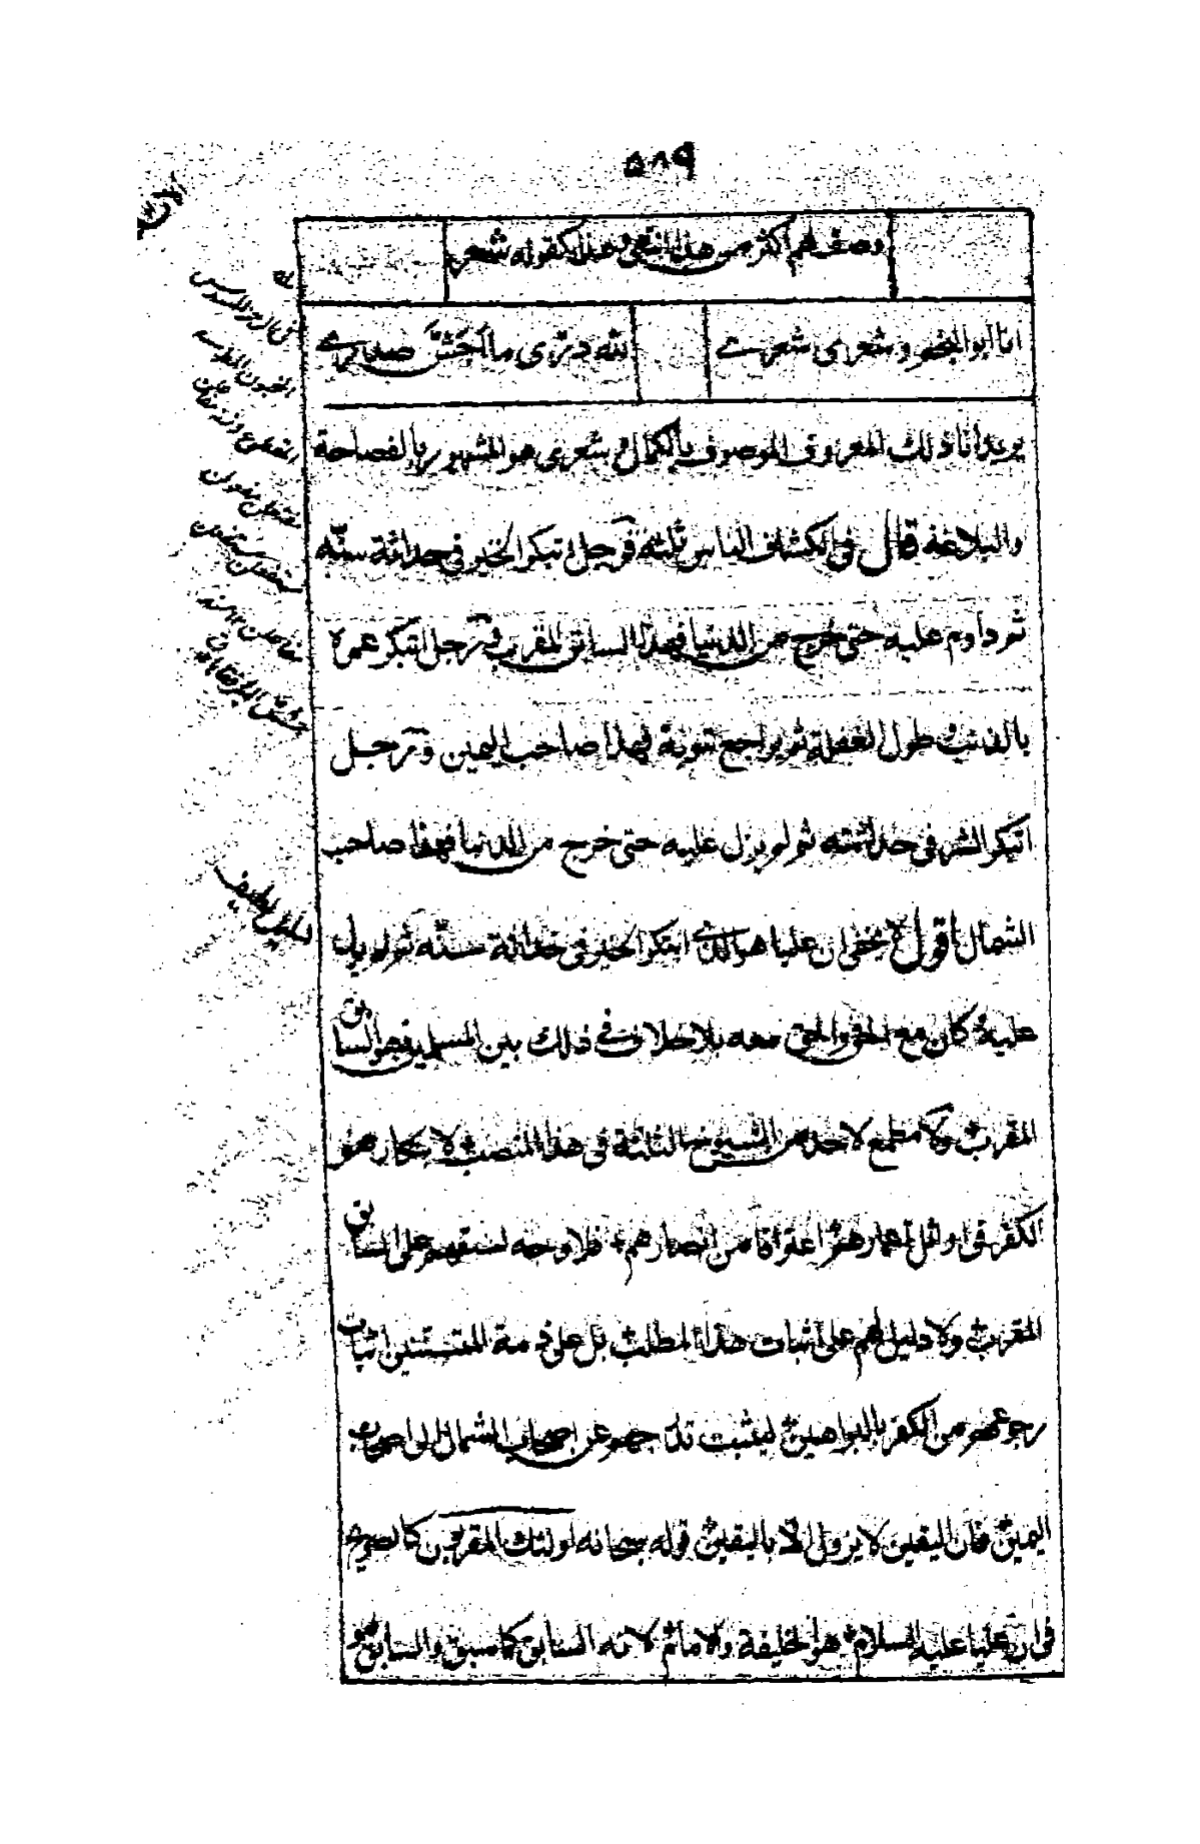 ٥٨٩
وصفهم اكثر من هذا انتهى وهذا كقوله شعر
انا ابو النجم وشعرى شعرى لله درى ما اجن صدرى
يريد انا ذلك المعروف الموصوف بالكمال وشعرى هو المشهور بالفصاحة
والبلاغة قال فى الكشاف الناس ثلثة فرجل ابتكر الخير فى حداثة سنه
ثم داوم عليه حتى خرج من الدنيا فهذا السابق المقرب ورجل ابتكر عمره
بالذنب وطول الغفلة ثم يراجع بتوبة فهذا صاحب اليمين ورجل
ابتكر الشر فى حداثته ثم لم يزل عليه حتى خرج من الدنيا فهذا صاحب
الشمال اقول لا يخفى ان عليا هو الذى ابتكر الخير فى حداثة سنه ثم لم يزل
عليه كان مع الحق والحق معه بلا خلاف فى ذلك بين المسلمين فهو السابق
المقرب ولا مطمع لاحد من الشيوخ الثلثة فى هذا المنصب لابتكارهم
الكفر فى اوائل اعمارهم اعترافا من انصارهم فلا وجه لسبقهم على السابق
المقرب ولا دليل لهم على اثبات هذا المطلب بل على ذمة المتسننين اثبات
رجوعهم من الكفر بالبراهين ليثبت خروجهم عن اصحاب الشمال الى اصحاب
اليمين فان اليقين لا يزول الا باليقين قوله سبحانه اولئك المقربون كالصريح
فى ان عليا عليه السلام هو الخليفة والامام لانه السابق كما سبق والسابق هو